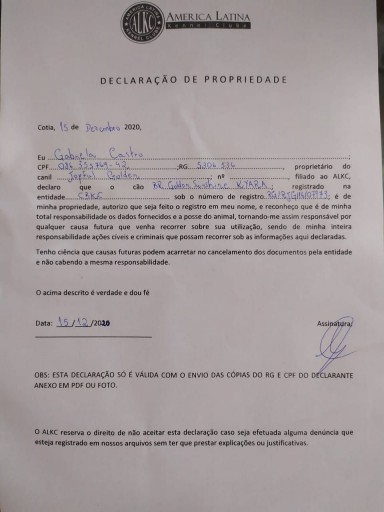 AMERICA LATINA
Kennel Clube
ALKC
DECLARAÇÃO DE PROPRIEDADE
Cotia, 15 de Dezembro 2020,
Eu Gabriela Castro
CPF RG proprietário do
canil Golden nº filiado ao ALKC,
declaro que o cão Golden KYARA registrado na
entidade CBKC sob o número de registro é de
minha propriedade, autorizo que seja feito o registro em meu nome, e reconheço que é de minha
total responsabilidade os dados fornecidos e a posse do animal, tornando-me assim responsável por
qualquer causa futura que venha recorrer sobre sua utilização, sendo de minha inteira
responsabilidade ações cíveis e criminais que possam recorrer sob as informações aqui declaradas.
Tenho ciência que causas futuras podem acarretar no cancelamento dos documentos pela entidade
e não cabendo a mesma responsabilidade.
O acima descrito é verdade e dou fé
Data: 15/12/2020 Assinatura:
OBS: ESTA DECLARAÇÃO SÓ É VÁLIDA COM O ENVIO DAS CÓPIAS DO RG E CPF DO DECLARANTE
ANEXO EM PDF OU FOTO.
O ALKC reserva o direito de não aceitar esta declaração caso seja efetuada alguma denúncia que
esteja registrado em nossos arquivos sem ter que prestar explicações ou justificativas.